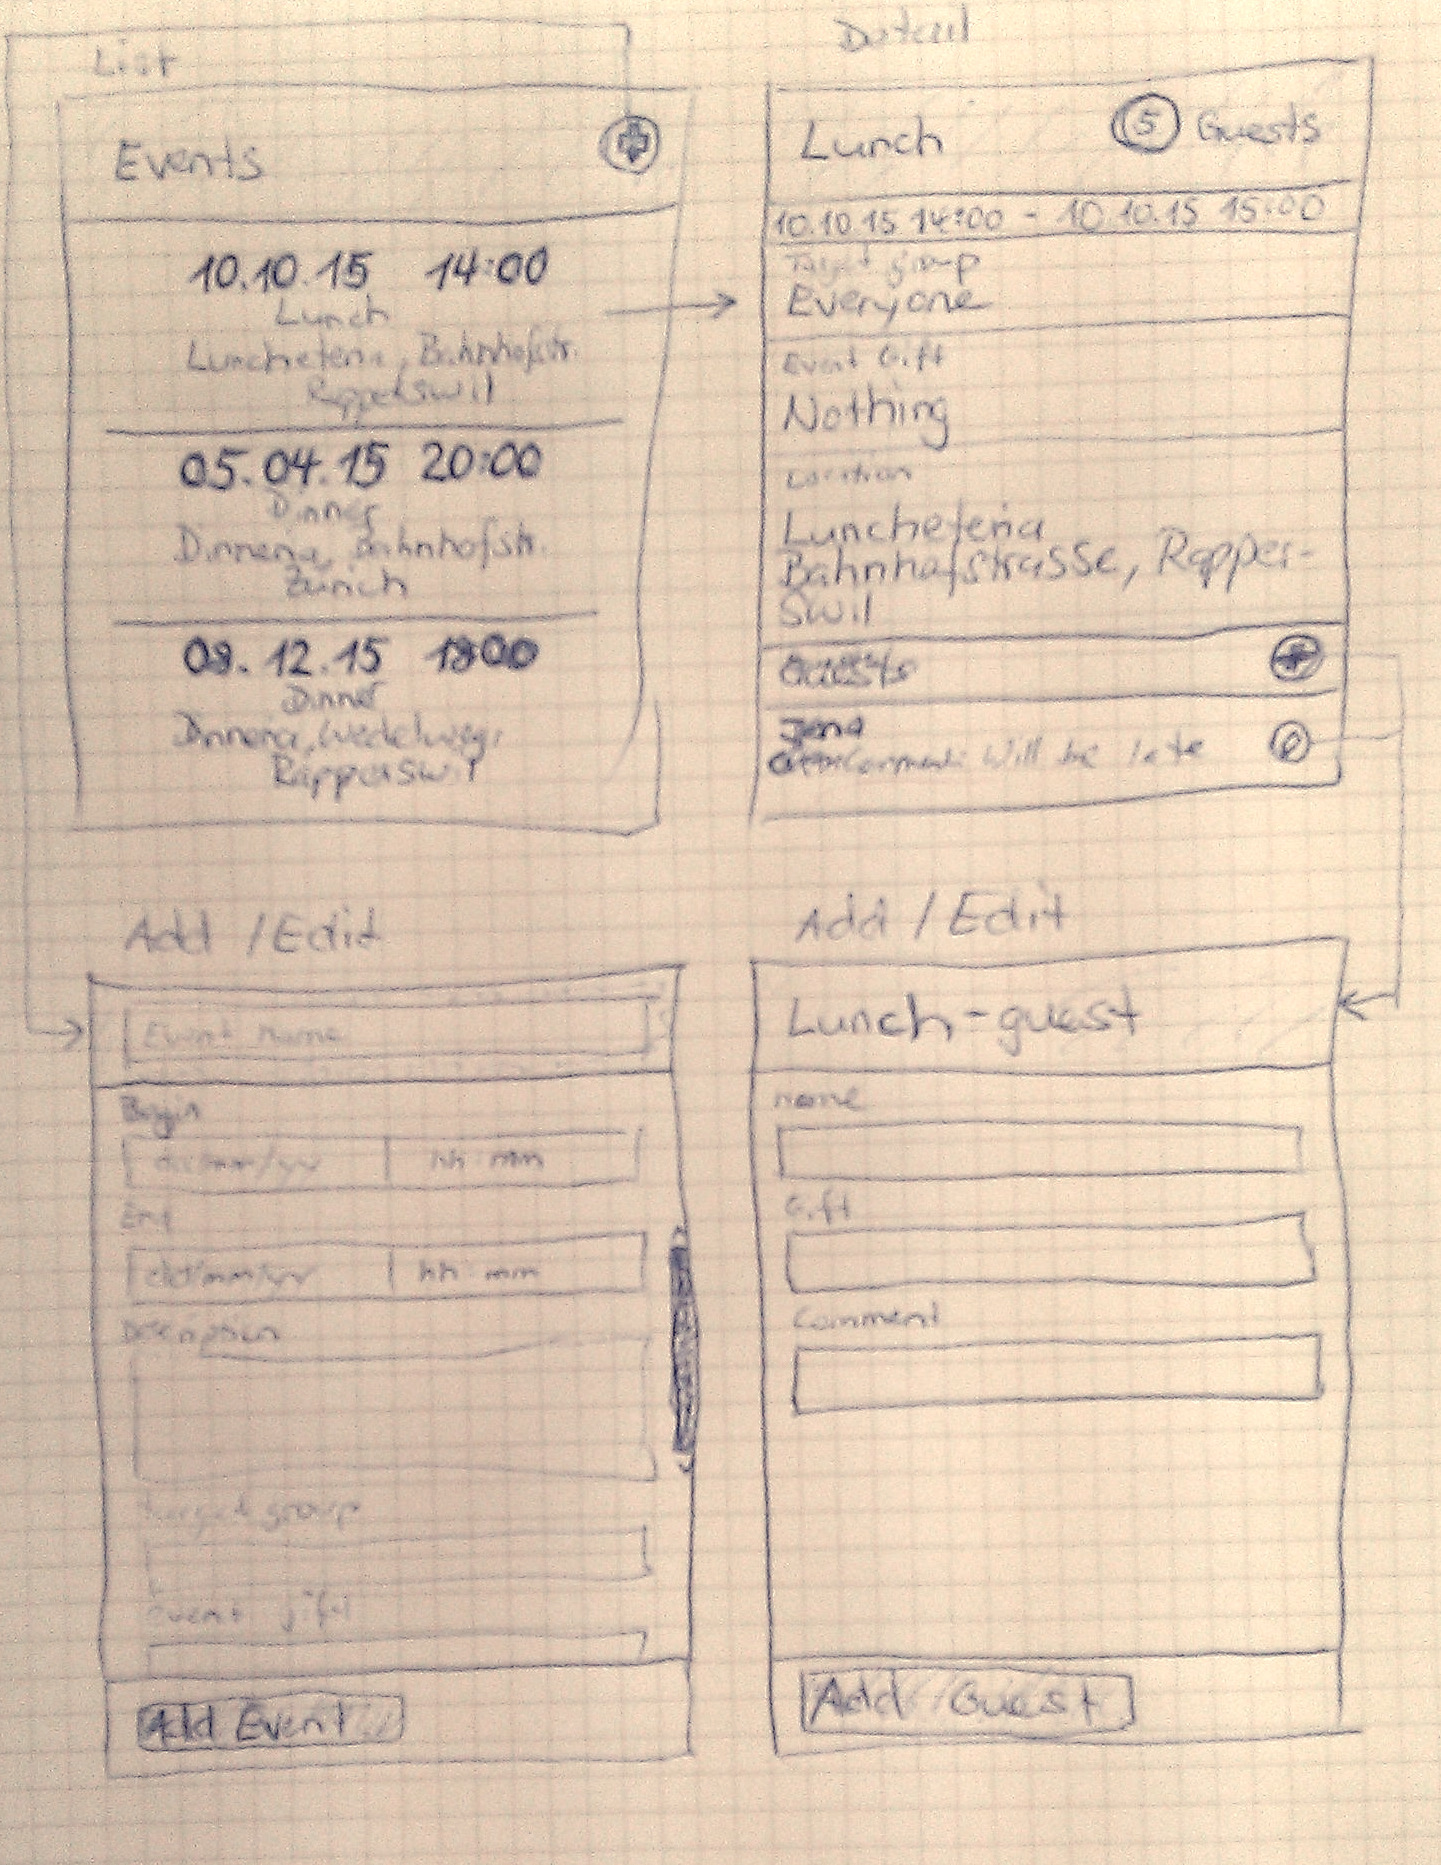 List
Events
10.10.15 14:00
Lunch
Luncheteria, Bahnhofstr.
Rapperswil
05.04.15 20:00
Dinner
Dinneria, Bahnhofstr.
Zürich
12.15
Dinner
Dinneria,
Rapperswil
Detail
Lunch 5 Guests
10.10.15 14:00 - 10.10.15 15:00
Target group
Everyone
Event Gift
Nothing
Location
Luncheteria
Bahnhofstrasse, Rapper-
swil
Guests
Jana
Comment: Will be late
Add / Edit
Event name
Begin
dd/mm/yy hh:mm
End
dd/mm/yy hh:mm
Description
Target group
Event gift
Add Event
Add / Edit
Lunch-guest
name
Gift
Comment
Add Guest